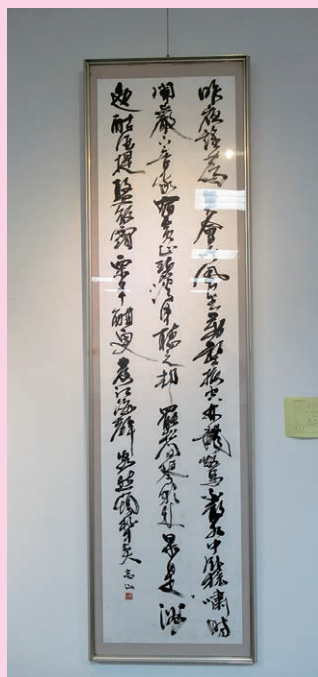 昨夜誰為吳會吟風生萬壑振空林龍驚不敢水中臥猿嘯時
聞巖下音我宿黃山碧溪月聽之却罷松間琴朝來果是滄洲
逸酤酒提盤飯霜栗半酣更發江海聲客愁頓向杯中失